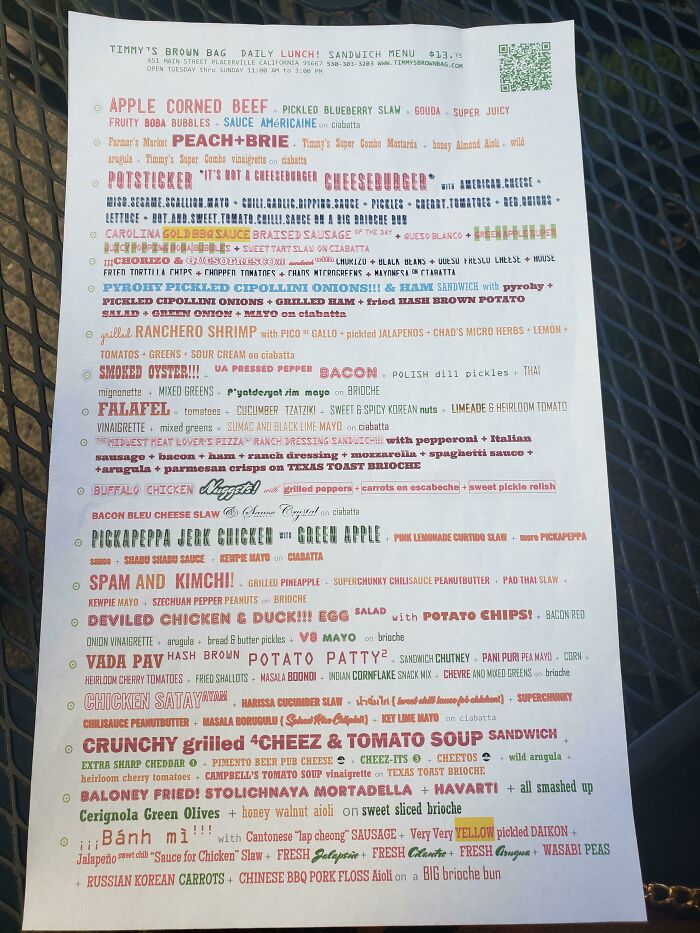 TIMMY'S BROWN BAG DAILY LUNCH! SANDWICH MENU $13.75
451 MAIN STREET PLACERVILLE CALIFORNIA 95667 530-303-3203 WWW.TIMMYSBROWNBAG.COM
OPEN TUESDAY thru SUNDAY 11:00 AM to 3:00 PM
APPLE CORNED BEEF + PICKLED BLUEBERRY SLAW + GOUDA + SUPER JUICY
FRUITY BOBA BUBBLES + SAUCE AMéRICAINE on ciabatta
Farmer's Market PEACH+BRIE + Timmy's Super Combo Mostarda + honey Almond Aioli + wild
arugula + Timmy's Super Combo vinaigrette on ciabatta
POTSTICKER "IT'S NOT A CHEESEBURGER CHEESEBURGER" WITH AMERICAN.CHEESE +
MISO.SESAME.SCALLION.MAYO + CHILI.GARLIC.DIPPING.SAUCE + PICKLES + CHERRY.TOMATOES + RED.ONIONS +
LETTUCE + HOT.AND.SWEET.TOMATO.CHILLI.SAUCE ON A BIG BRIOCHE BUN
CAROLINA GOLD BBQ SAUCE BRAISED SAUSAGE OF THE DAY + QUESO BLANCO + GREEN APPLE SUPER
JUICY POPPING BOBA BUBBLES + SWEET TART SLAW ON CIABATTA
¡¡¡CHORIZO & QUESOFRESCO!!! sandwich with CHORIZO + BLACK BEANS + QUESO FRESCO CHEESE + HOUSE
FRIED TORTILLA CHIPS + CHOPPED TOMATOES + CHAOS MICROGREENS + MAYONESA ON CIABATTA
PYROHY PICKLED CIPOLLINI ONIONS!!! & HAM SANDWICH with pyrohy +
PICKLED CIPOLLINI ONIONS + GRILLED HAM + fried HASH BROWN POTATO
SALAD + GREEN ONION + MAYO on ciabatta
grilled RANCHERO SHRIMP with PICO de GALLO + pickled JALAPENOS + CHAD'S MICRO HERBS + LEMON +
TOMATOES + GREENS + SOUR CREAM on ciabatta
SMOKED OYSTER!!! + UA PRESSED PEPPER BACON + POLISH dill pickles + THAI
mignonette + MIXED GREENS + P'yatdesyat sim mayo on BRIOCHE
FALAFEL + tomatoes + CUCUMBER TZATZIKI + SWEET & SPICY KOREAN nuts + LIMEADE & HEIRLOOM TOMATO
VINAIGRETTE + mixed greens + SUMAC AND BLACK LIME MAYO on ciabatta
"THE MIDWEST MEAT LOVER'S PIZZA w/ RANCH DRESSING SANDWICH!!! with pepperoni + Italian
sausage + bacon + ham + ranch dressing + mozzarella + spaghetti sauce +
+arugula + parmesan crisps on TEXAS TOAST BRIOCHE
BUFFALO CHICKEN Nuggets! with grilled peppers + carrots en escabeche + sweet pickle relish
BACON BLEU CHEESE SLAW & Sauce Crystal on ciabatta
PICKAPEPPA JERK CHICKEN WITH GREEN APPLE + PINK LEMONADE CURTIDO SLAW + more PICKAPEPPA
sauce + SHABU SHABU SAUCE + KEWPIE MAYO ON CIABATTA
SPAM AND KIMCHI! + GRILLED PINEAPPLE + SUPERCHUNKY CHILISAUCE PEANUTBUTTER + PAD THAI SLAW +
KEWPIE MAYO + SZECHUAN PEPPER PEANUTS on BRIOCHE
DEVILED CHICKEN & DUCK!!! EGG SALAD with POTATO CHIPS! + BACON RED
ONION VINAIGRETTE + arugula + bread & butter pickles + V8 MAYO on brioche
VADA PAV HASH BROWN POTATO PATTY² + SANDWICH CHUTNEY + PANI PURI PEA MAYO + CORN +
HEIRLOOM CHERRY TOMATOES + FRIED SHALLOTS + MASALA BOONDI + INDIAN CORNFLAKE SNACK MIX + CHEVRE AND MIXED GREENS on brioche
CHICKEN SATAY AYAM + HARISSA CUCUMBER SLAW + น้ำจิ้มไก่ (sweet chili sauce for chicken!) + SUPERCHUNKY
CHILISAUCE PEANUTBUTTER + MASALA BORUGULU + KEY LIME MAYO on ciabatta
CRUNCHY grilled ⁴CHEEZ & TOMATO SOUP SANDWICH +
EXTRA SHARP CHEDDAR + PIMENTO BEER PUB CHEESE + CHEEZ-ITS + CHEETOS + wild arugula +
heirloom cherry tomatoes + CAMPBELL'S TOMATO SOUP vinaigrette on TEXAS TOAST BRIOCHE
BALONEY FRIED! STOLICHNAYA MORTADELLA + HAVARTI + all smashed up
Cerignola Green Olives + honey walnut aioli on sweet sliced brioche
¡¡¡Bánh mì!!! with Cantonese "lap cheong" SAUSAGE + Very Very YELLOW pickled DAIKON +
Jalapeño sweet chili "Sauce for Chicken" Slaw + FRESH Jalapeño + FRESH Cilantro + FRESH Arugua + WASABI PEAS
+ RUSSIAN KOREAN CARROTS + CHINESE BBQ PORK FLOSS Aioli on a BIG brioche bun